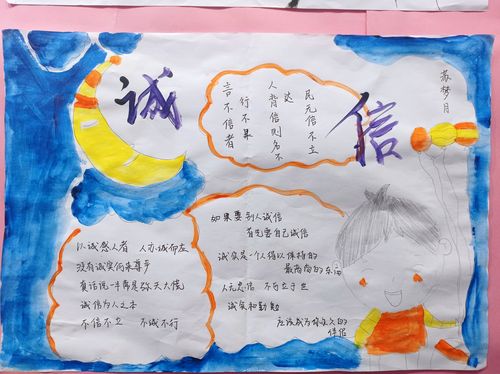 诚信
苏梦月
言不信者
行不果
人背信则名不
达
民无信不立
以诚感人者 人亦诚而应
没有诚实何来尊严
真话说一半常是弥天大谎
诚信为人之本
不信不立 不诚不行
如果要别人诚信
首先要自己诚信
诚实是一个人得以保持的
最高尚的东西
人无忠信 不可立于世
诚实和勤勉
应该成为你永久的
伴侣